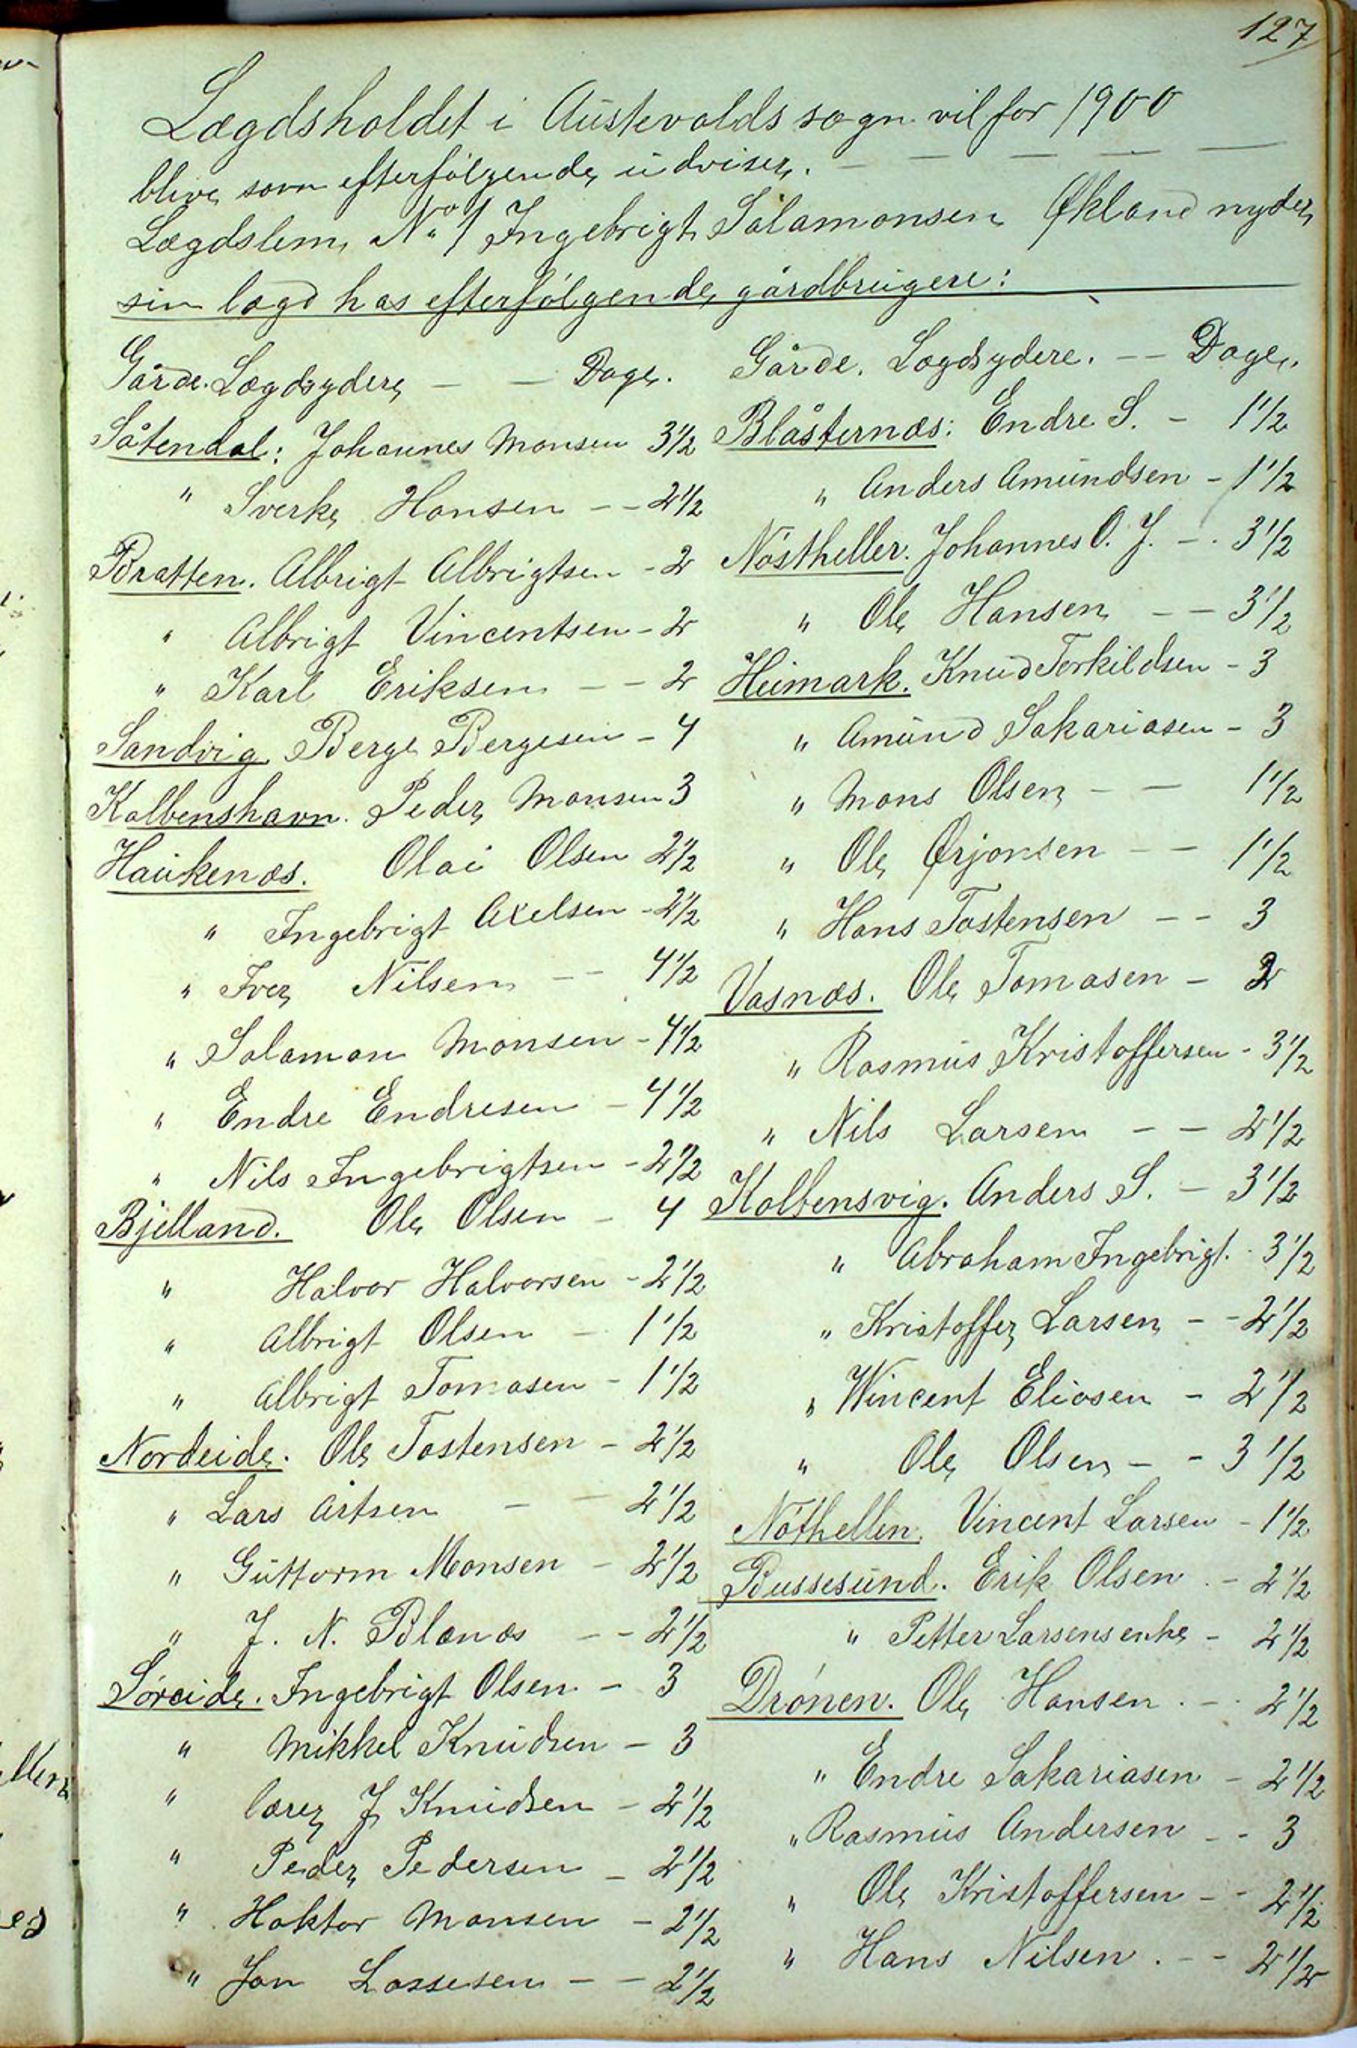 127
Lægdsholdet i Austevolds sogn vil for 1900
blive som efterfølgende udviser. — — — — —
Lægdslem No 1 Ingebrigt Salamonsen Økland nyder
sin lægd hos efterfølgende gårdbrugere:
Gårde. Lægdsydere — — Dage.
Såtendal: Johannes Monsen 3 1/2
" Sverke Hansen — — 2 1/2
Bratten. Albrigt Albrigtsen - 2
" Albrigt Vincentsen - 2
" Karl Eriksen — — 2
Sandvig Berge Bergesen - 4
Kalbenshavn. Peder Monsen 3
Haukenæs. Olai Olsen 2 1/2
" Ingebrigt Axelsen - 2 1/2
" Iver Nilsen — — 4 1/2
" Salamon Monsen - 4 1/2
" Endre Endresen - 4 1/2
" Nils Ingebrigtsen - 2 1/2
Bjelland. Ole Olsen - 4
" Halvor Halvorsen - 2 1/2
" Albrigt Olsen - 1 1/2
" Albrigt Tomasen - 1 1/2
Nordeide. Ole Tostensen - 2 1/2
" Lars Artsen — — 2 1/2
" Guttorm Monsen - 2 1/2
" J. N. Blænæs — — 2 1/2
Søreide. Ingebrigt Olsen - 3
" Mikkel Knudsen - 3
" lærer J Knudsen - 2 1/2
" Peder Pedersen - 2 1/2
" Haktor Monsen - 2 1/2
" Jon Lassesen — — 2 1/2
Gårde. Lægdsydere. — — Dage.
Blåsternæs: Endre S. - 1 1/2
" Anders Amundsen - 1 1/2
Nøstheller. Johannes O. J. - . 3 1/2
" Ole Hansen — — 3 1/2
Heimark. Knud Torkildsen - 3
" Amund Sakariasen - 3
" Mons Olsen — — 1 1/2
" Ole Ørjansen — — 1 1/2
" Hans Tostensen — — 3
Vasnæs. Ole Tomasen - 2
" Rasmus Kristoffersen - 3 1/2
" Nils Larsen — — 2 1/2
Kolbensvig. Anders S. - 3 1/2
" Abraham Ingebrigt. - 3 1/2
" Kristoffer Larsen - - 2 1/2
" Wincent Eliasen - 2 1/2
" Ole Olsen - - 3 1/2
Nøthellen. Vincent Larsen - 1 1/2
Bussesund. Erik Olsen . - 2 1/2
" Petter Larsens enke - 2 1/2
Drønen. Ole Hansen . - . 2 1/2
" Endre Sakariasen - 2 1/2
" Rasmus Andersen - - 3
" Ole Kristoffersen - - 2 1/2
" Hans Nilsen . - - 2 1/2